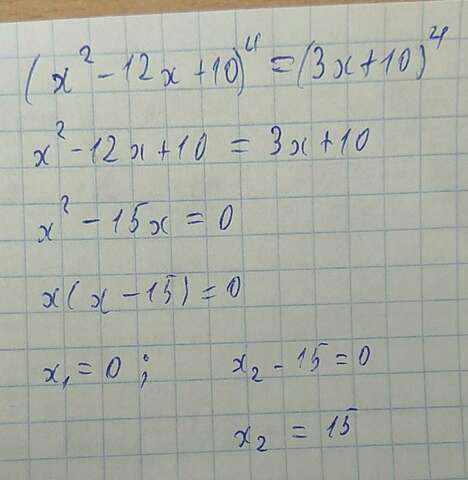 (x² - 12x + 10)⁴ = (3x + 10)⁴
x² - 12x + 10 = 3x + 10
x² - 15x = 0
x(x - 15) = 0
x₁ = 0 ; x₂ - 15 = 0
x₂ = 15